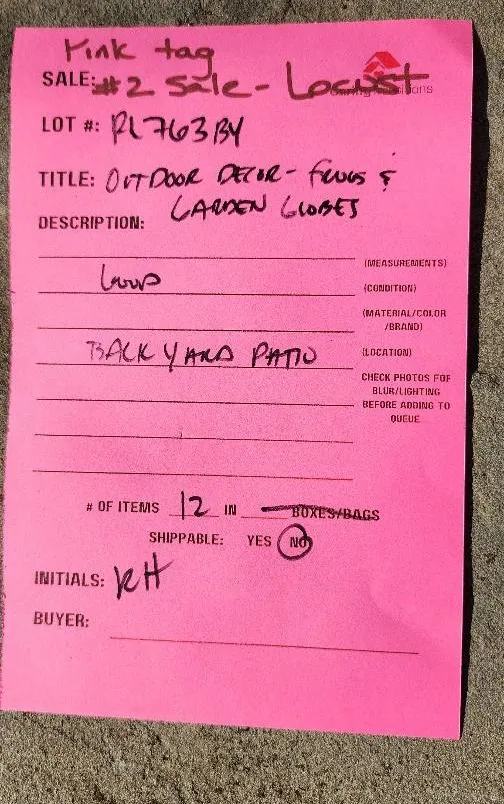 Pink tag
SALE: #2 Sale - Locust
LOT #: PL763BY
TITLE: OUTDOOR DECOR - FROGS &
GARDEN GLOBES
DESCRIPTION:
(MEASUREMENTS)
GOOD (CONDITION)
(MATERIAL/COLOR
/BRAND)
BACK YARD PATIO (LOCATION)
CHECK PHOTOS FOR
BLUR/LIGHTING
BEFORE ADDING TO
QUEUE
# OF ITEMS 12 IN BOXES/BAGS
SHIPPABLE: YES NO
INITIALS: RH
BUYER: